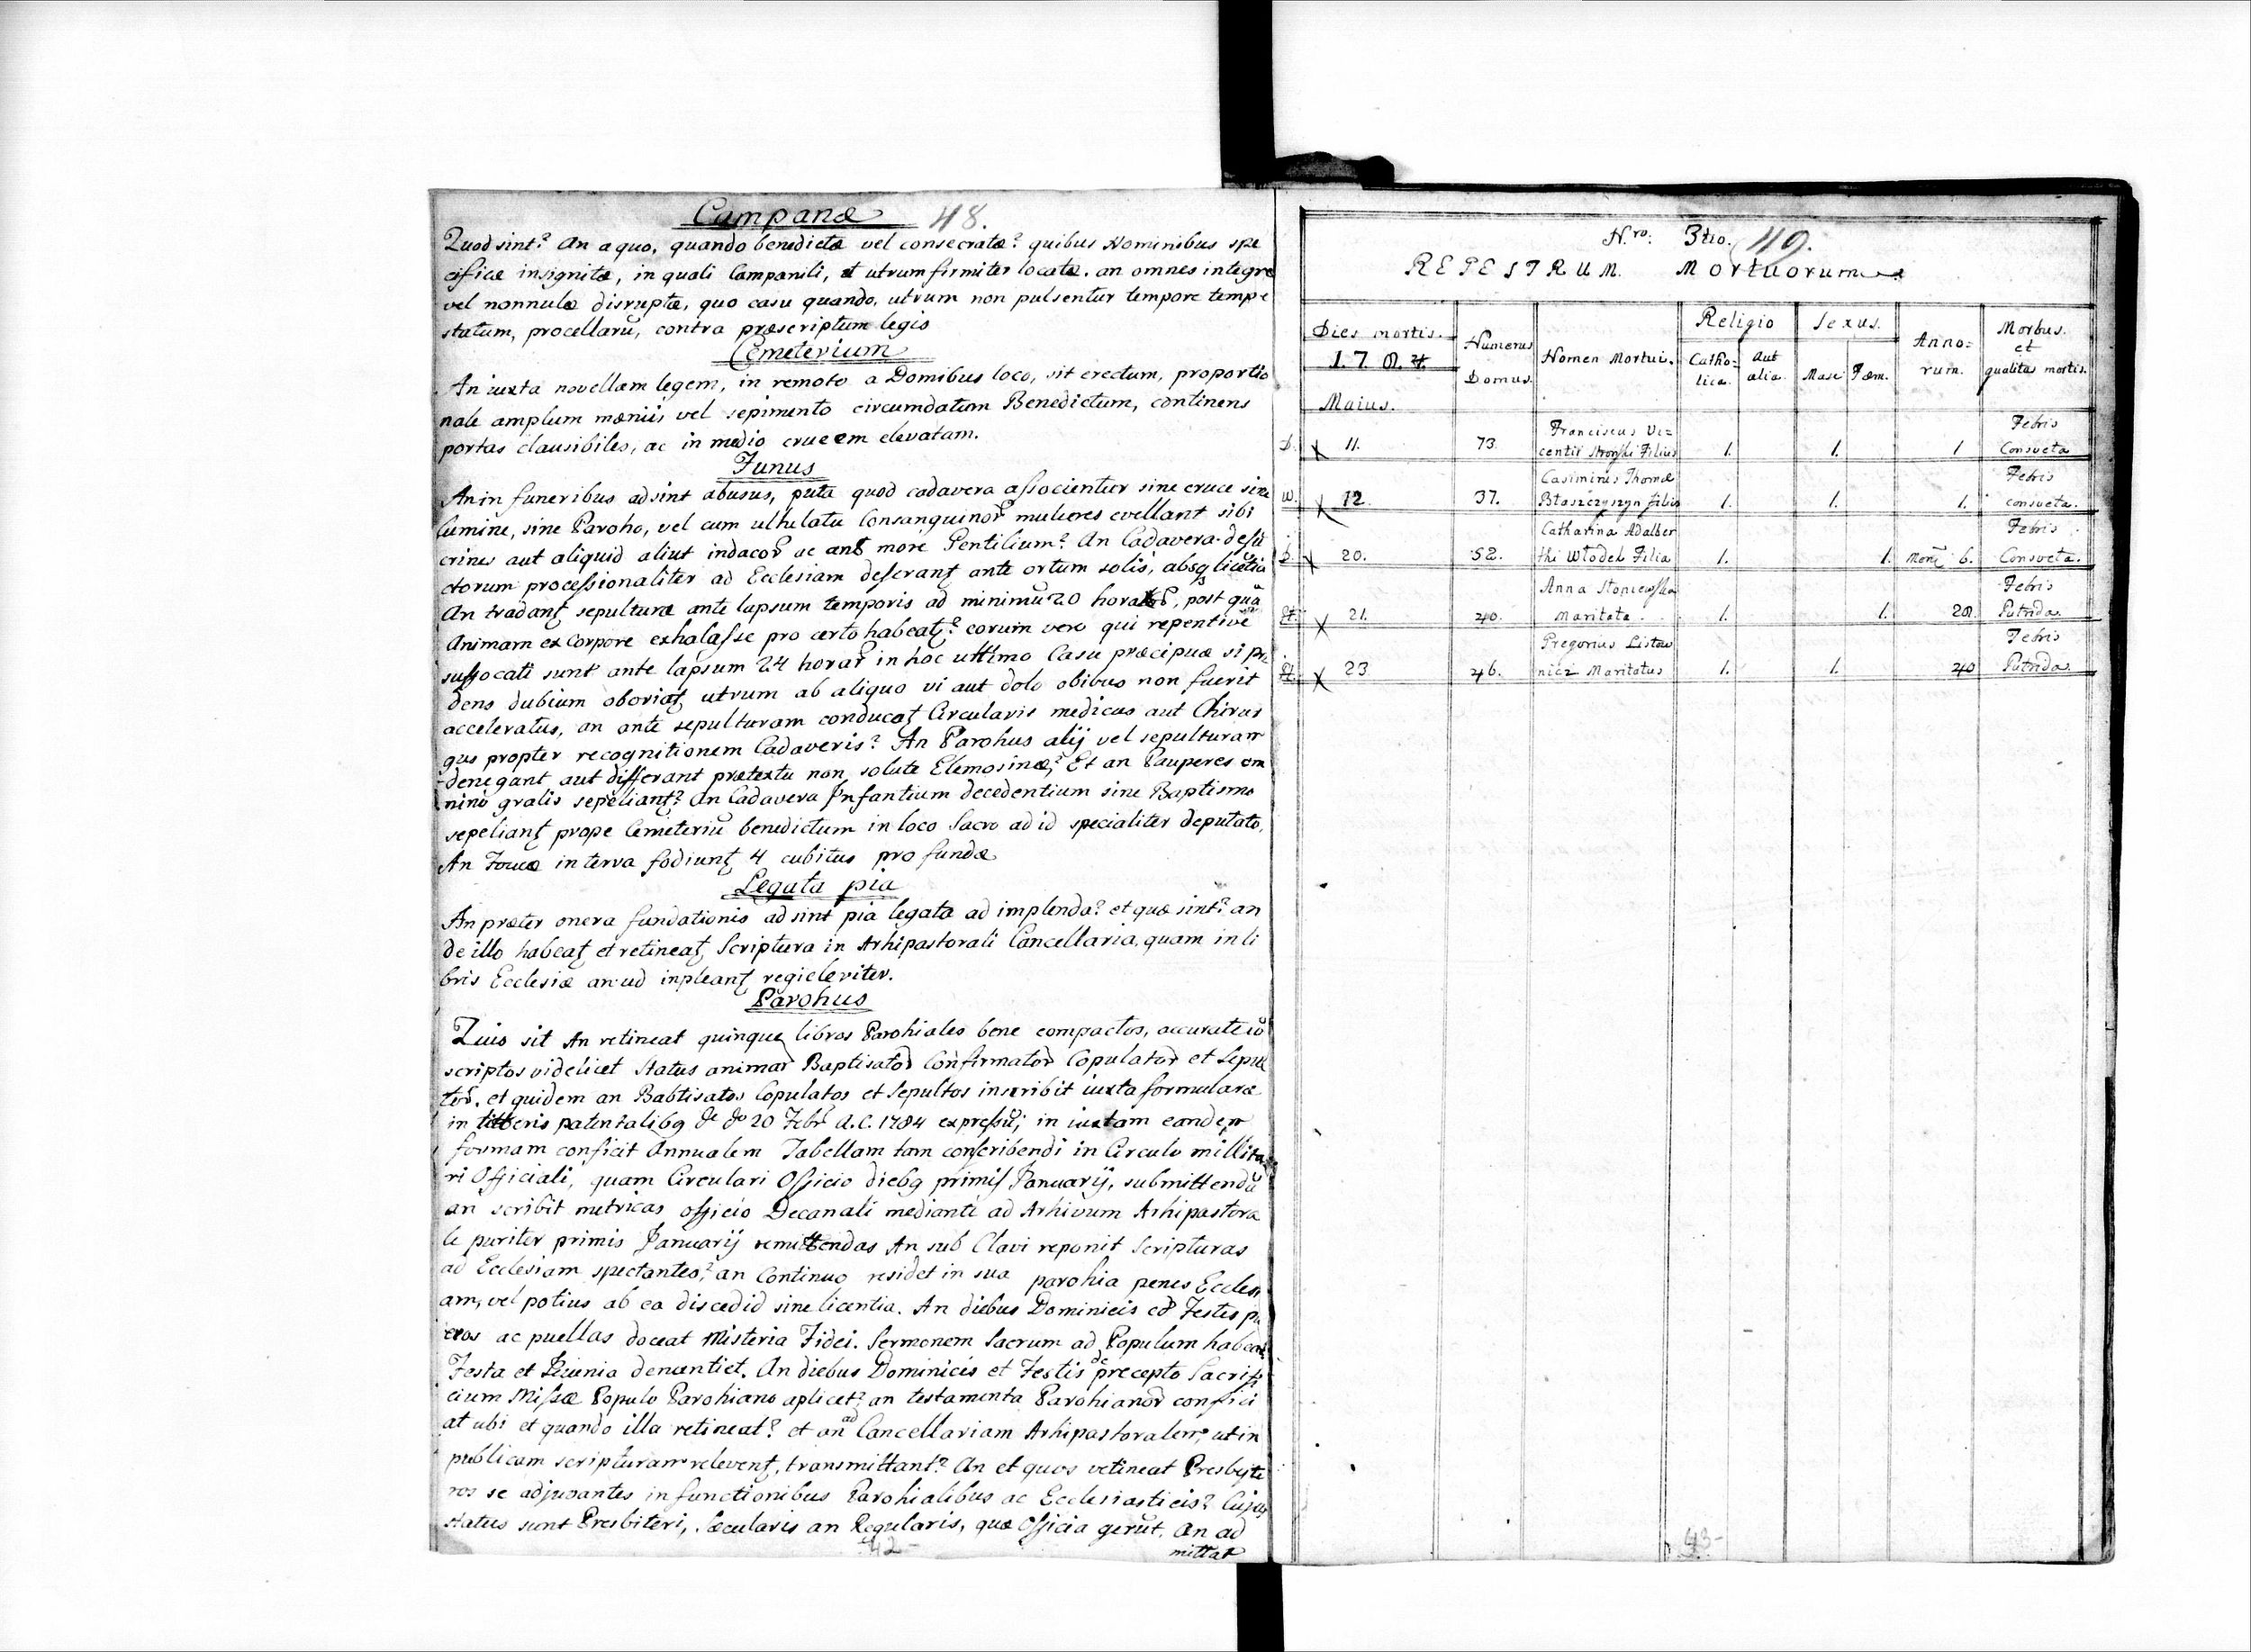 Campanæ 48.
Quod sint? An a quo, quando benedictæ vel consecratæ? quibus Nominibus spe
cificæ insignitæ, in quali Campanili, et utrum firmiter locatæ. an omnes integræ
vel nonnulæ disruptæ, quo casu quando, utrum non pulsentur tempore tempe
statum, procellarū, contra præscriptum legis
Cemeterium
An iuxta novellam legem, in remoto a Domibus loco, sit erectum, proportio
nale amplum mæniis vel sepimento circumdatum Benedictum, continens
portas clausibiles, ac in medio crucem elevatam.
Funus
An in funeribus adsint abusus, puta quod cadavera associentur sine cruce sine
lumine, sine Paroho, vel cum ulhulatu Consanguinor mulieres evellant sibi
crines aut aliquid aliut indacor ac ant more Gentilium? An Cadavera defū
ctorum processionaliter ad Ecclesiam deferant ante ortum solis, absq licētia
An tradant sepulturæ ante lapsum temporis ad minimū 20 horar, post quā
Animam ex Corpore exhalasse pro certo habeat? eorum vero qui repentive
suffocati sunt ante lapsum 24 horar in hoc ultimo Casu præcipuæ si pru
dens dubium oboriat, utrum ab aliquo vi aut dolo obibus non fuerit
acceleratus, an ante sepulturam conducat Circularis medicus aut Chirur
gus propter recognitionem Cadaveris? An Parohus alij vel sepulturam
denegant aut differant prætextu non solutæ Elemosinæ? Et an Pauperes om
nino gratis sepeliant? An Cadavera Infantium decedentium sine Baptismo
sepeliant prope Cemeteriū benedictum in loco Sacro ad id specialiter deputato,
An Fouæ in terra fodiunt 4 cubitus profundæ
Legata pia
An præter onera fundationis adsint pia legata ad implenda? et quæ sint? an
de illo habeat et retineat Scriptura in Arhipastorali Cancellaria, quam in li
bris Ecclesiæ an ud inpleant regieleriter.
Parohus
Quis sit An retineat quinque libros Parohiales bene compactos, accurate cō
scriptos videlicet Status animar Baptisator Confirmator Copulator et Sepul
tor. et quidem an Babtisatos Copulatos et Sepultos inscribit iuxta formularæ
in litteris patentalibq de do 20 Febr A.C. 1784 expressū; in iuxtam eandem
formam conficit Annualem Tabellam tam conscribendi in Circulo millita
ri Officiali, quam Circulari Officio diebq primis Januarij, submittendū
an scribit metricas officio Decanali mediante ad Arhivum Arhipastora
le pariter primis Januarij remittendas An sub Clavi reponit Scripturas
ad Ecclesiam spectantes? an Continuo residet in sua parohia penes Ecclesi
am, vel potius ab ea discedid sine licentia. An diebus Dominicis et Festis pu
eros ac puellas doceat Misteria Fidei. Sermonem Sacrum ad Populum habeat
Festa et Jeiunia denuntiet. An diebus Dominicis et Festis de precepto Sacrifi
cium Missæ Populo Parohiano aplicet? an testamenta Parohianor confici
at ubi et quando illa retineat? et an ad Cancellariam Arhipastoralem, ut in
publicam scripturam relevent, transmittant? An et quos retineat Presbyte
ros se adjuvantes in functionibus Parohialibus ac Ecclesiasticis? Cujus
status sunt Presbiteri, Sæcularis an Regularis, quæ Officia gerūt. An ad
mittat
42-
Nro: 3tio. 49.
REGESTRUM. Mortuorum
Dies mortis. 1784. Maius. Numerus Domus. Nomen Mortui. Religio Catho-lica. Aut alia. Sexus. Masc Fæm. Anno-rum. Morbus. et qualitas mortis.
D. 11. 73. Franciscus Vi=centii Stroński Filius 1. 1. 1 Febris Consveta
W. 12. 37. Casimirus Thomæ Błaszczyszyn filius 1. 1. 1. Febris consveta.
D. 20. 52. Catharina Adalber thi Włodek Filia 1. 1. Men 6. Febris Consveta.
21. 40. Anna Stoniewska Maritata. 1. 1. 28. Febris Putrida.
23 46. Gregorius Listow nicz Maritatus 1. 1. 40 Febris Putrida.
43-